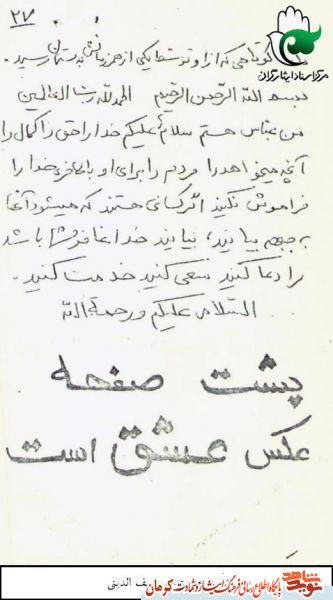 ۲۷
کوتاهی که از او توسط یکی از همرزمانش به دستمان رسید.
مرکز اسناد ایثارگران
بسم الله الرحمن الرحیم الحمدلله رب العالمین
من عباس هستم سلام علیکم خدا را حق را کمال را
آنچه میخواهد را مردم را برای او خدا را
فراموش نکنید اگر کسانی هستند که میشود آنها
به جبهه بیایند، بیایند خدا حافظ شما باشد
را دعا کنید سعی کنید خدمت کنید.
السلام علیکم و رحمة الله
پشت صفحه
عکس عشق است
یف الدینی
نوید شاهد
پایگاه اطلاع رسانی فرهنگ ایثار و شهادت کرمان